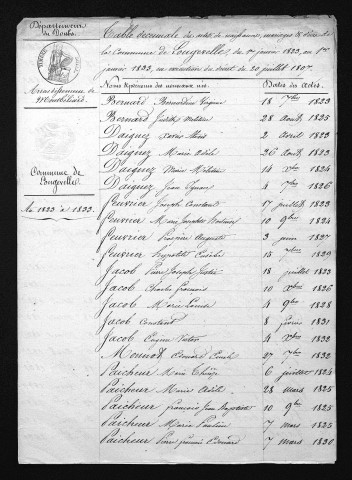 Département
du Doubs.
Arrondissement de
Montbéliard.
Commune de
Longevelle.
An 1823 à 1833.
Table décennale des actes de naissances, mariages & décès de
la Commune de Longevelle, du 1er janvier 1823, au 1er
janvier 1833, en exécution du décret du 20 juillet 1807.
Noms & prénoms des nouveaux nés. Dates des Actes.
Bernard Bernardine 18 7bre 1823
Bernard 28 Août 1825
Daiguez Xavier 2 Avril 1823
Daiguez Marie Adèle 26 Août 1823
Daiguez Marie 14 Xbre 1824
Daiguez Jean 4 7bre 1826
Feuvrier Joseph Constant 17 juillet 1823
Feuvrier Marie 10 9bre 1824
Feuvrier Auguste 3 juin 1827
Feuvrier Hypolite 15 7bre 1829
Jacob Pierre Joseph 18 juillet 1823
Jacob Charles François 10 Xbre 1826
Jacob Marie Louise 4 9bre 1828
Jacob Constant 8 février 1831
Jacob Eugène Victor 4 Xbre 1832
Mounot Edouard 27 7bre 1832
Paicheur Marie Thérèse 6 juillet 1824
Paicheur Marie Adèle 28 mars 1825
Paicheur François Jean Baptiste 10 9bre 1825
Paicheur Marie 7 mars 1825
Paicheur Pierre François Edouard 7 mars 1830